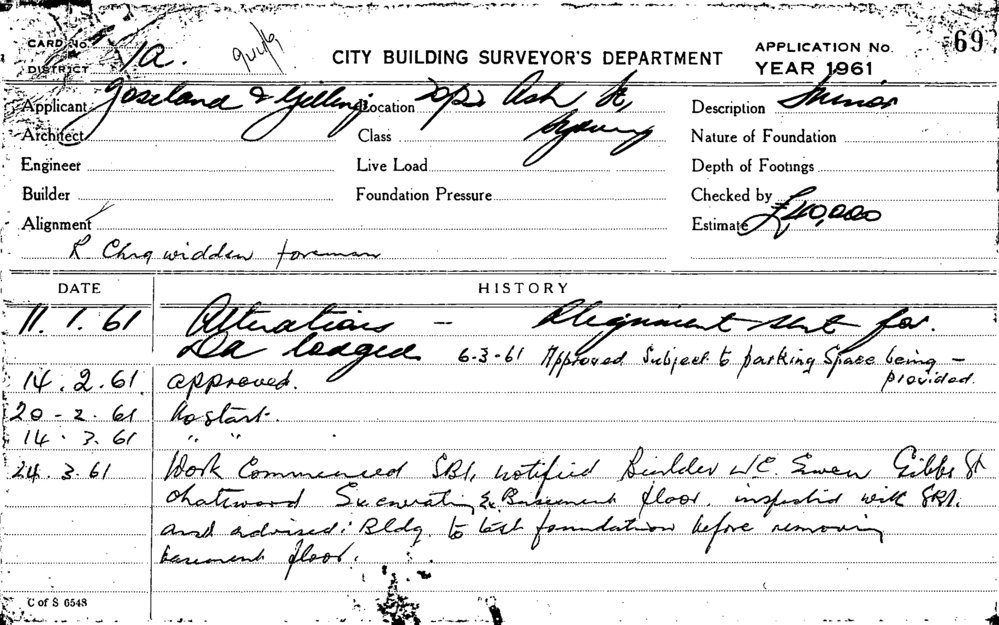 CARD No. 1a. CITY BUILDING SURVEYOR'S DEPARTMENT APPLICATION No. 69
DISTRICT YEAR 1961
Applicant Joseland & Gilling Location Ash St, Description Minor
Architect Class Sydney Nature of Foundation
Engineer Live Load Depth of Footings
Builder Foundation Pressure Checked by
Alignment Estimate £40,000
R Chegwidden foreman
DATE HISTORY
11.1.61 Alterations - Alignment sent for.
Da lodged 6-3-61 Approved Subject to parking Space being -
provided.
14.2.61. approved.
20-2.61 No start.
14.3.61 " "
24.3.61 Work Commenced SBI, notified Builder Ewen Gibbs St
Chatswood Excavating Basement floor. inspected with SBI.
and advised: Bldg. to test foundation before removing
basement floor.
C of S 6548